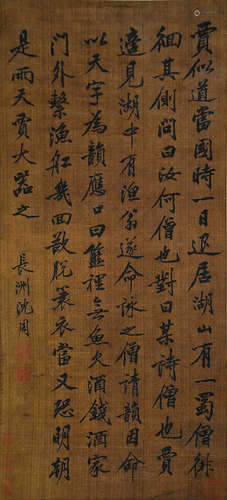 賈似道當國時一日退居湖山有一蜀僧徘
徊其側問曰汝何僧也對曰某詩僧也賈
適見湖中有漁翁遂命詠之僧請韻自命
以天字為韻應口曰籃裡無魚欠酒錢酒家
門外繫漁船幾回欲脫蓑衣當又恐明朝
是雨天賈大器之
長洲沈周